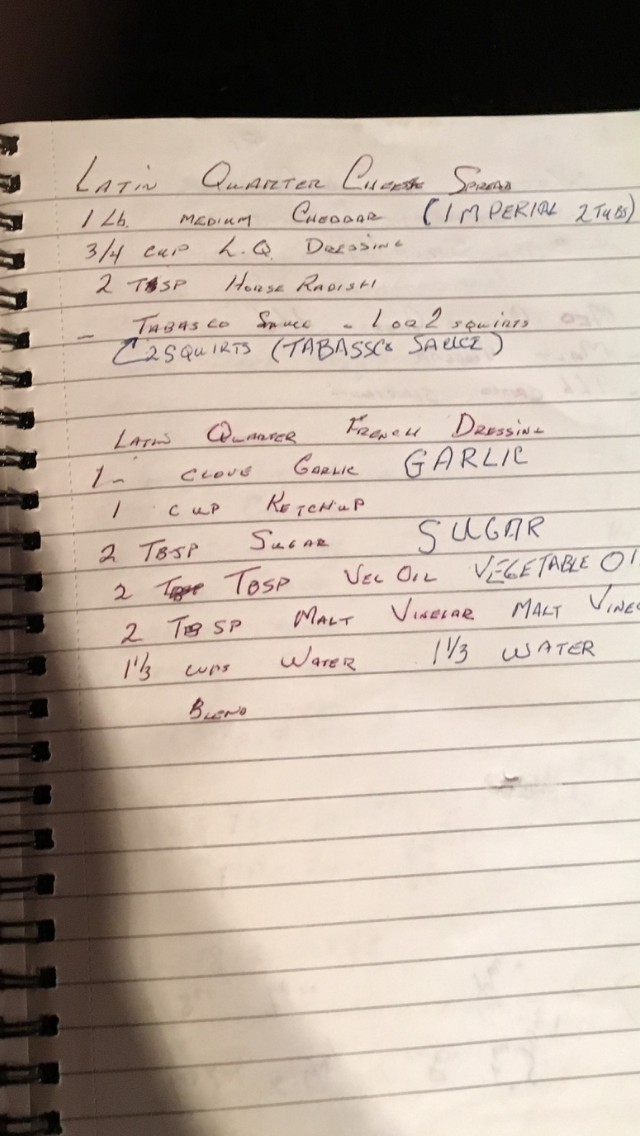 LATIN QUARTER CHEESE SPREAD
1 Lb. MEDIUM CHEDDAR (IMPERIAL 2 TUBS)
3/4 CUP L.Q DRESSING
2 TBSP HORSE RADISH
- TABASCO SAUCE - 1 OR 2 SQUIRTS
2 SQUIRTS (TABASSCO SAUCE)
LATIN QUARTER FRENCH DRESSING
1- CLOVE GARLIC GARLIC
1 CUP KETCHUP
2 TBSP SUGAR SUGAR
2 TBSP VEG OIL VEGETABLE OI
2 TBSP MALT VINEGAR MALT VINE
1 1/3 CUPS WATER 1 1/3 WATER
BLEND